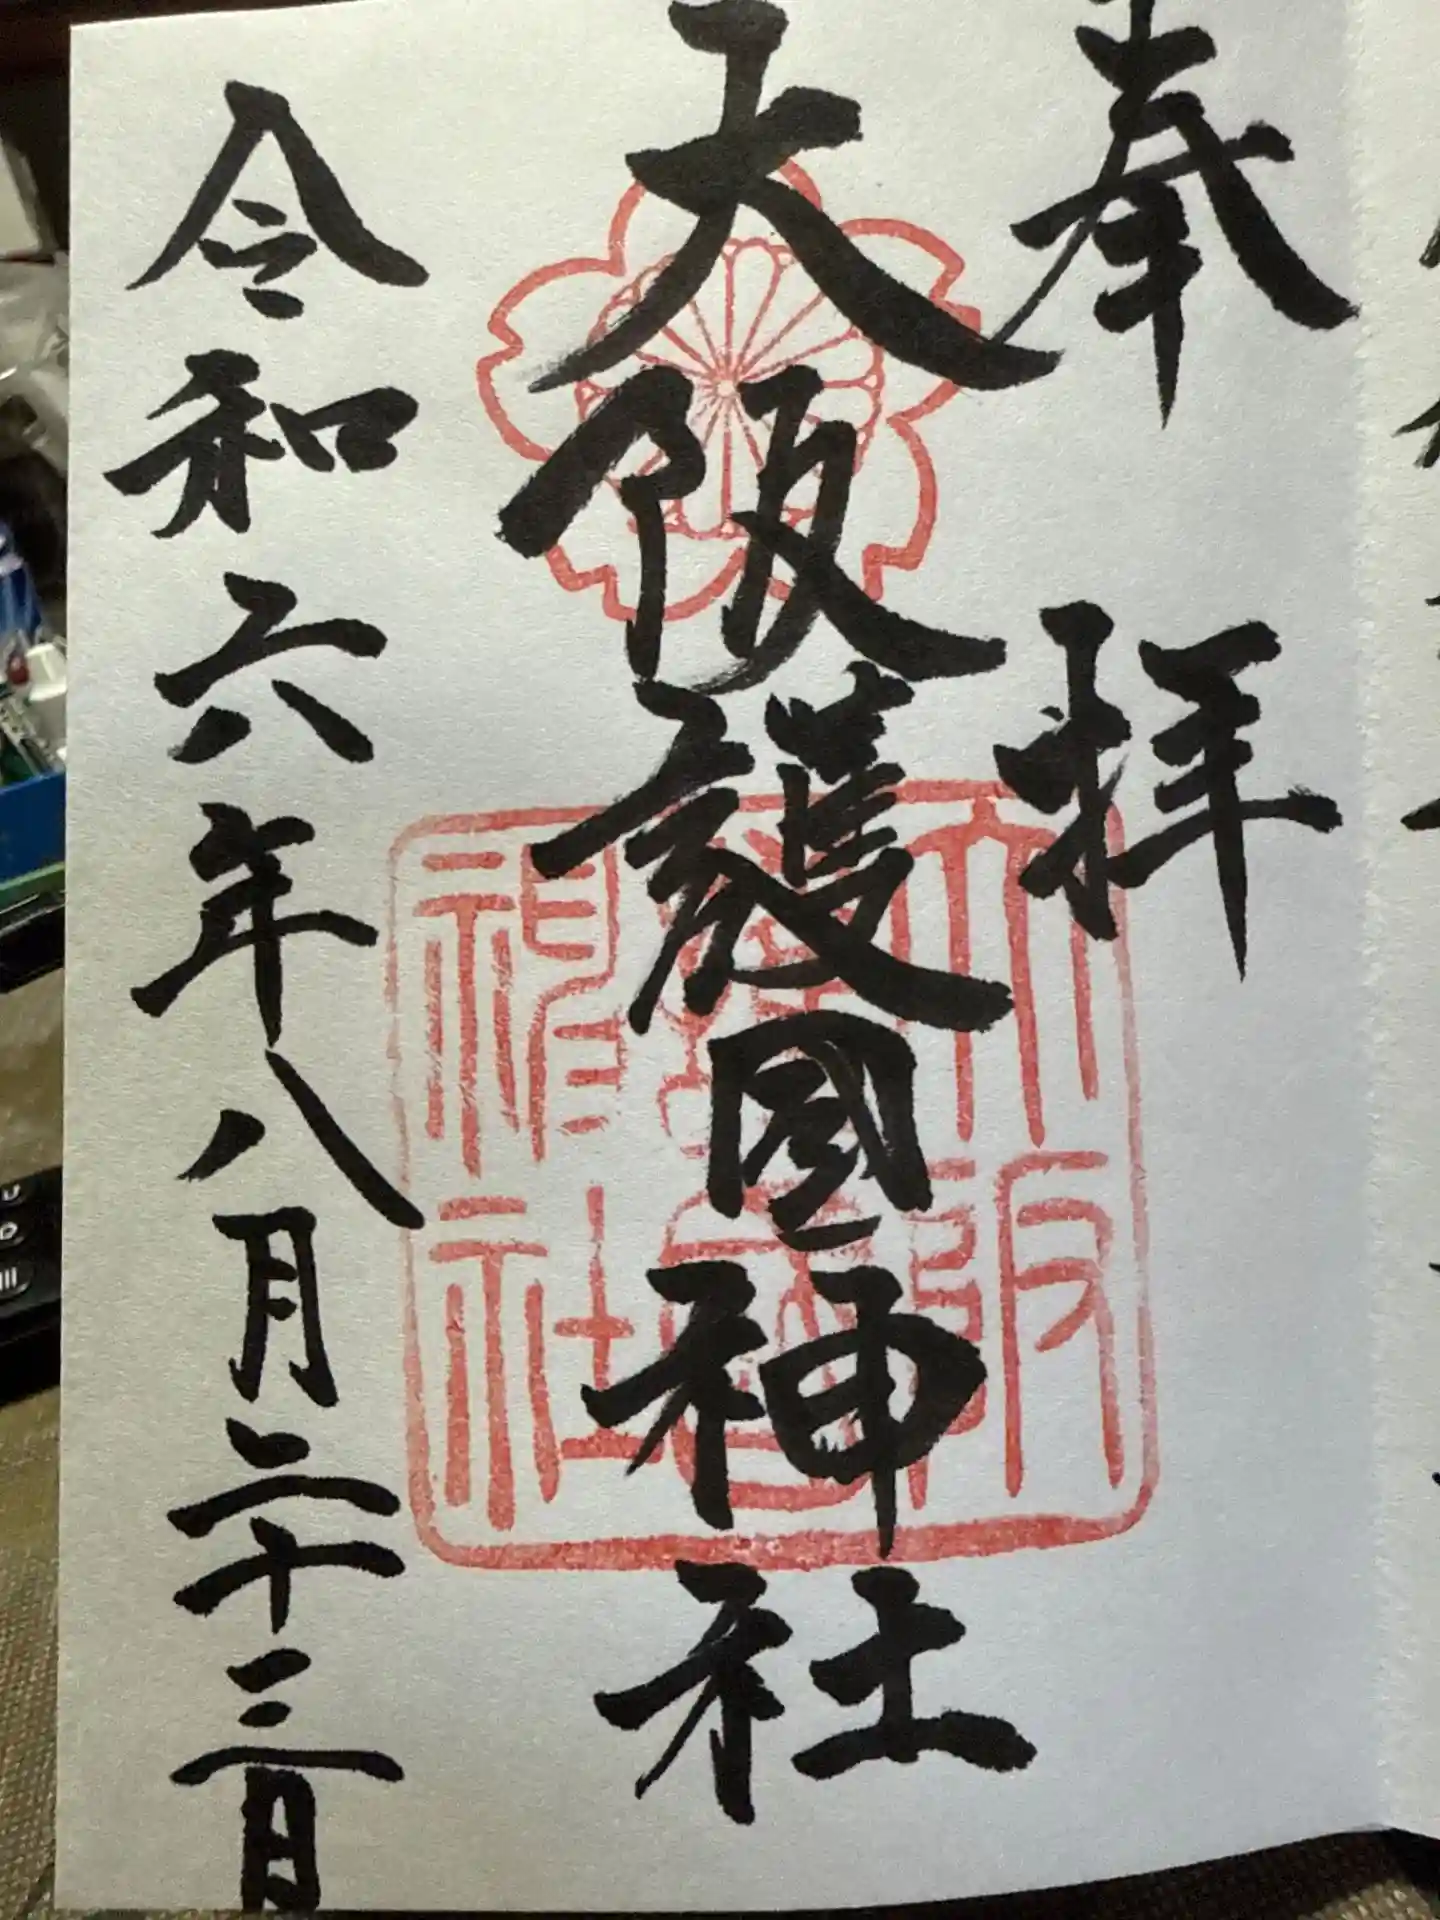 奉拝
大阪護國神社
大阪護國神社
令和六年八月二十三日